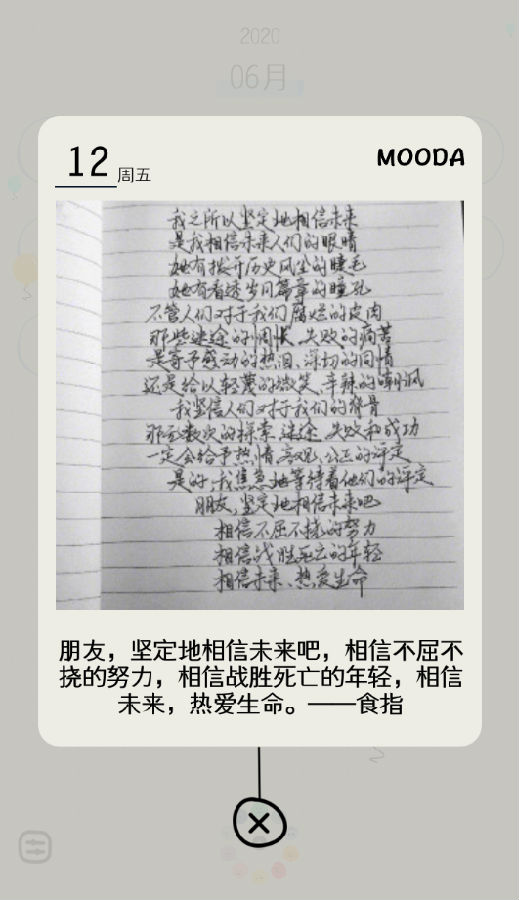 2020
06月
12 周五
MOODA
我之所以坚定地相信未来
是我相信未来人们的眼睛
她有拨开历史风尘的睫毛
她有看透岁月篇章的瞳孔
不管人们对于我们腐烂的皮肉
那些迷途的惆怅、失败的痛苦
是寄予感动的热泪、深切的同情
还是给以轻蔑的微笑、辛辣的嘲讽
我坚信人们对于我们的脊骨
那无数次的探索、迷途、失败和成功
一定会给予热情、客观、公正的评定
是的，我焦急地等待着他们的评定
朋友，坚定地相信未来吧
相信不屈不挠的努力
相信战胜死亡的年轻
相信未来、热爱生命
朋友，坚定地相信未来吧，相信不屈不
挠的努力，相信战胜死亡的年轻，相信
未来，热爱生命。——食指